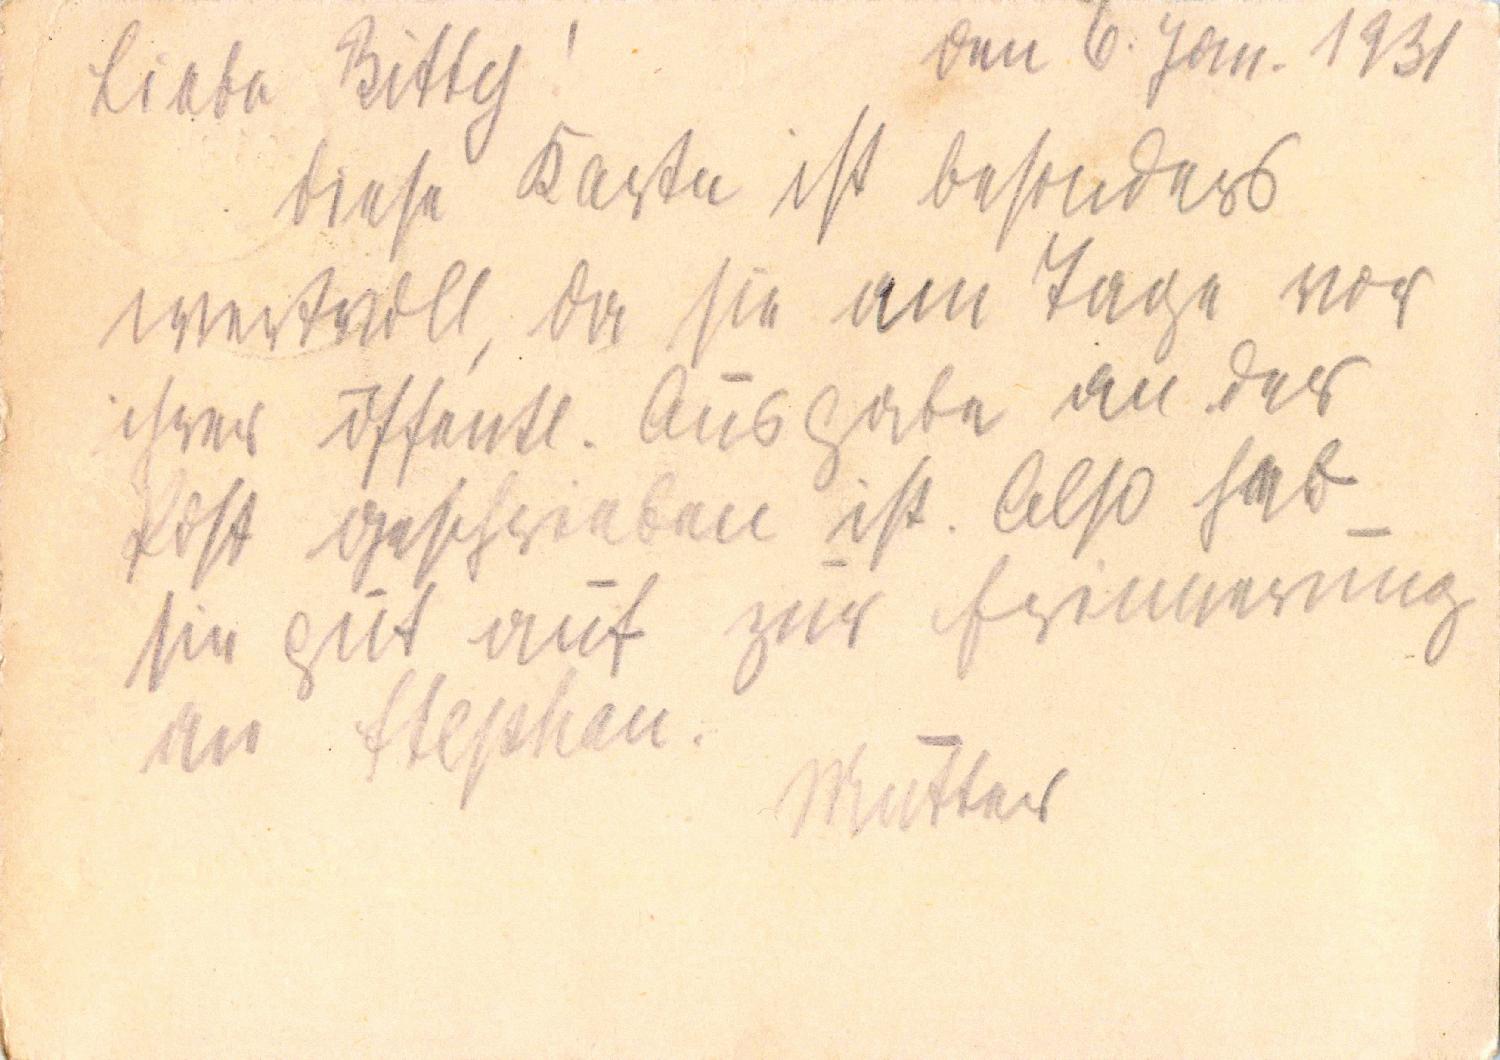 Liebe Bitty! den 6. Jan. 1931
diese Karte ist besonders
wertvoll, da sie am Tage vor
ihrer öffentl. Ausgabe an der
Post geschrieben ist. Also heb
sie gut auf zur Erinnerung
an Stephan.
Mutter